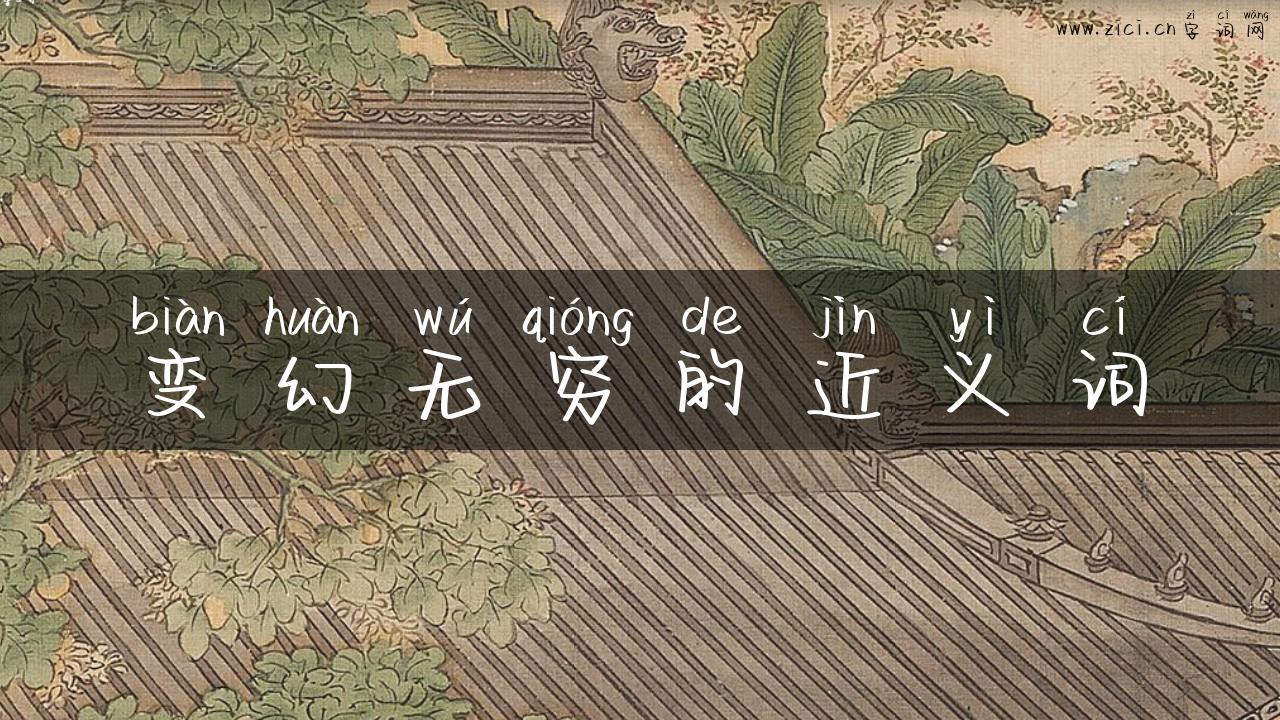 zì cí wǎng
www.zici.cn 字词网
biàn huàn wú qióng de jìn yì cí
变幻无穷的近义词